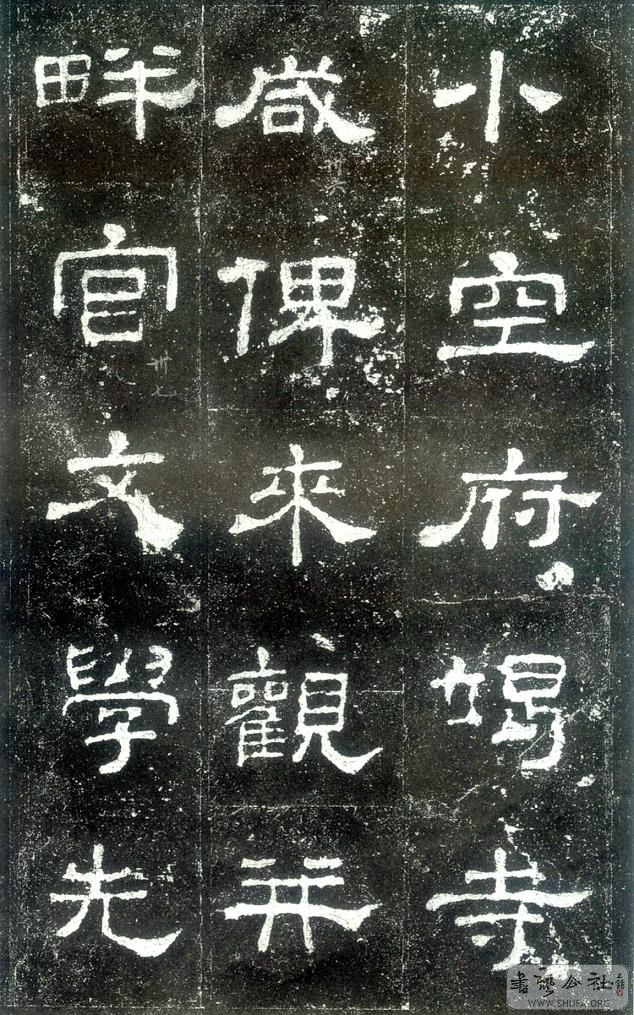 小空府竭寺
咸俾來觀并
畔官文學先
卅七
書灋公社
WWW.SHUFA.ORG